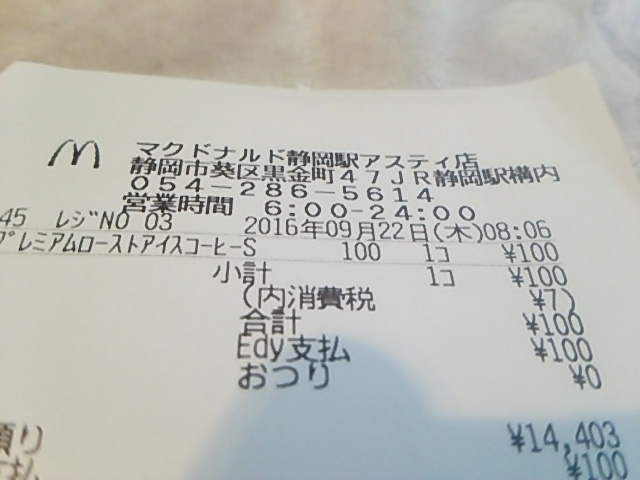 マクドナルド静岡駅アスティ店
静岡市葵区黒金町47JR静岡駅構内
054-286-5614
営業時間 6:00-24:00
45 レジNO 03 2016年09月22日(木)08:06
プレミアムローストアイスコーヒーS 100 1コ ¥100
小計 1コ ¥100
(内消費税 ¥7)
合計 ¥100
Edy支払 ¥100
おつり ¥0
預り ¥14,403
支払 ¥100